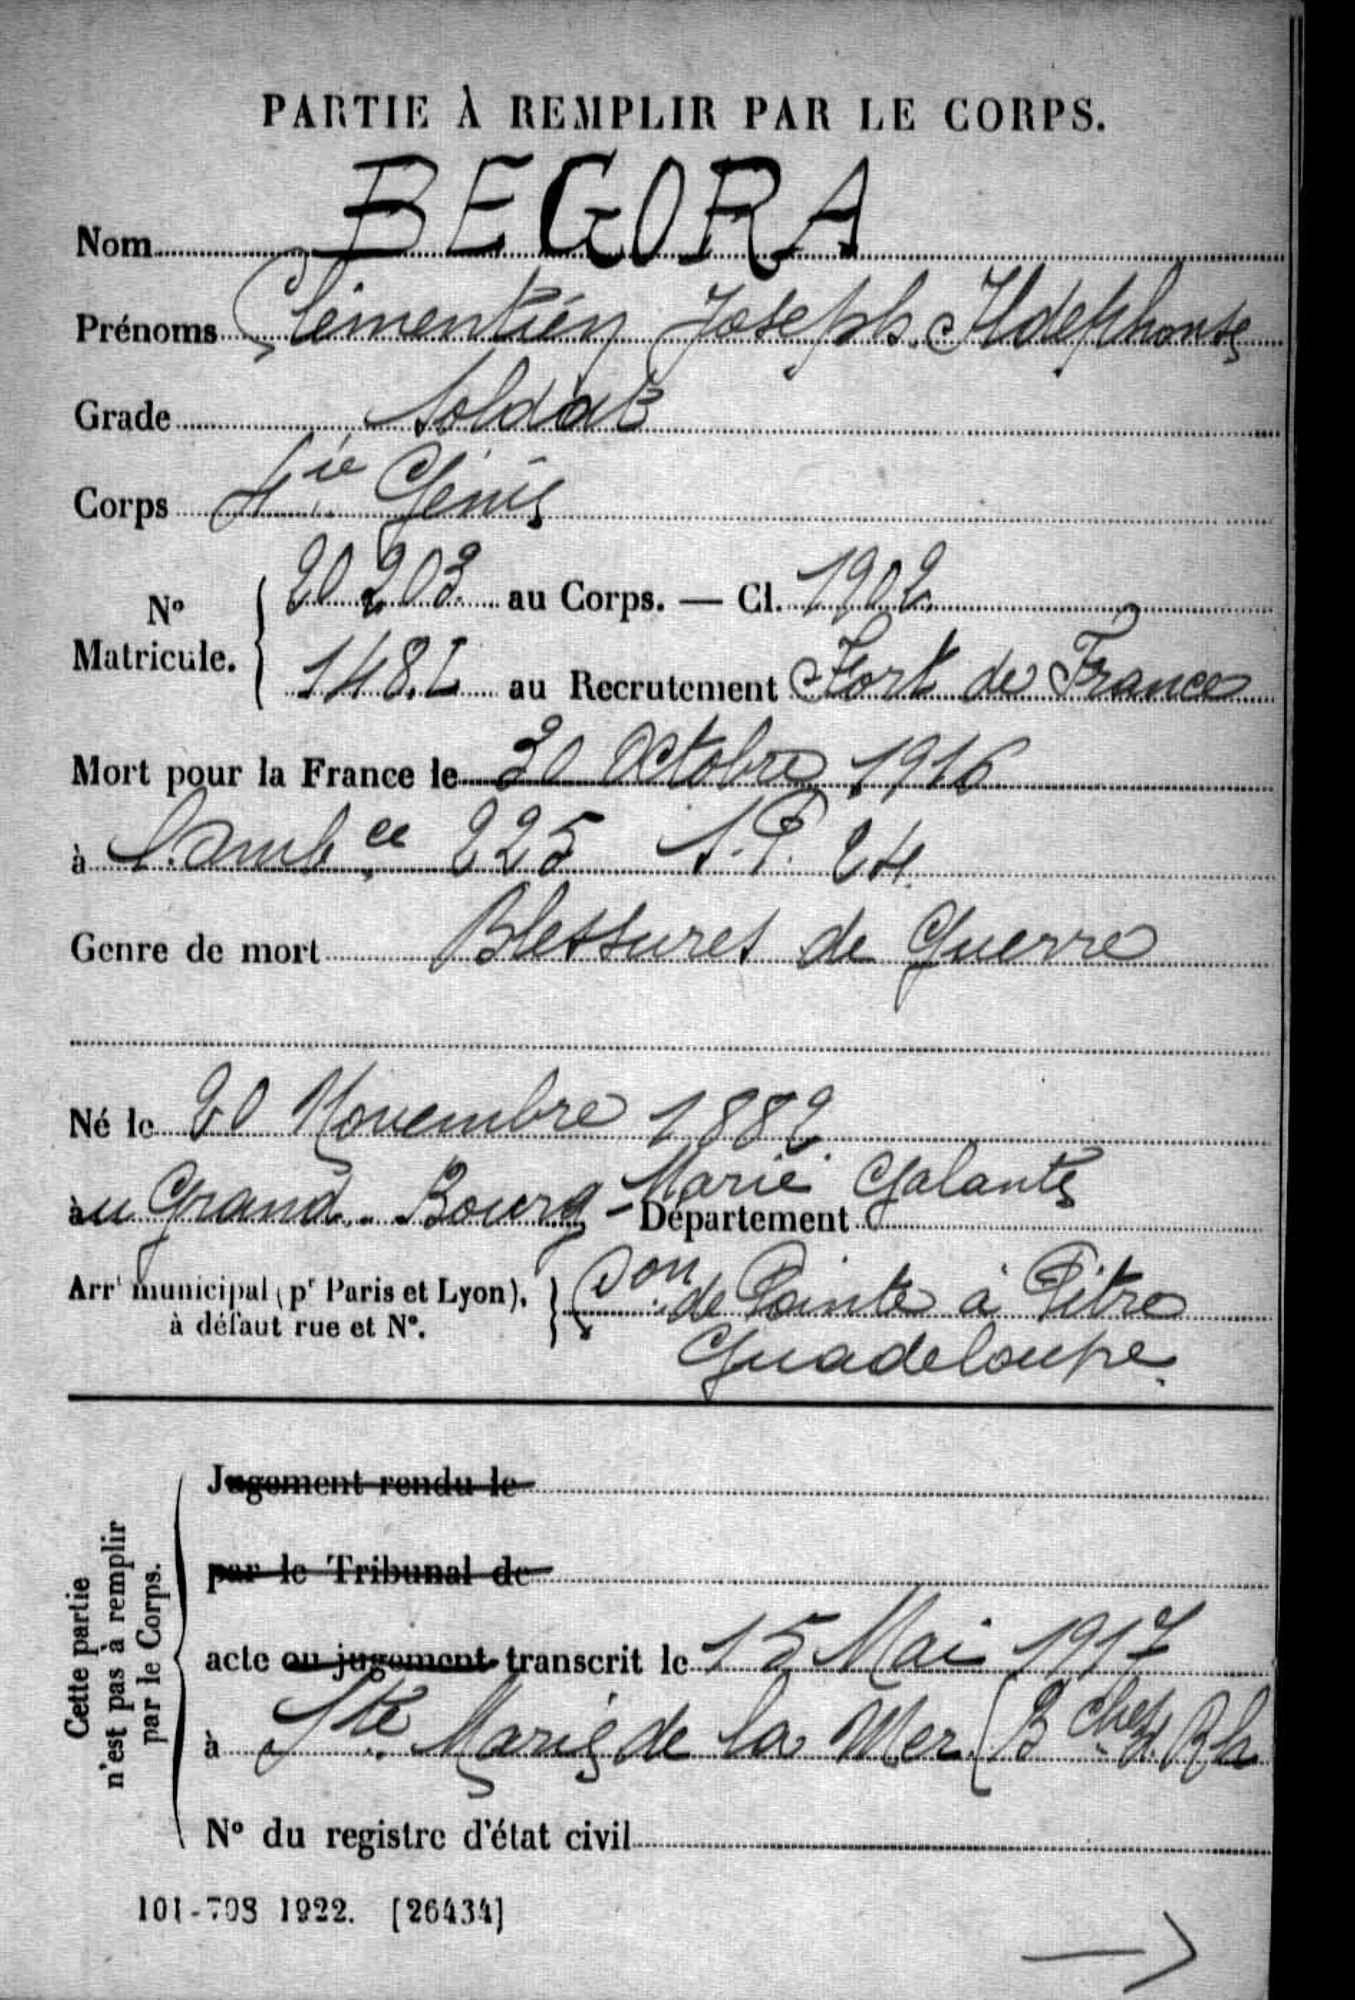 PARTIE À REMPLIR PAR LE CORPS.
Nom BEGORA
Prénoms Clémentien Joseph Ildephonse
Grade Soldat
Corps 4ie Génie
N° Matricule. 20 203 au Corps. — Cl. 1902
148.L au Recrutement Fort de France
Mort pour la France le 30 Octobre 1916
à l'ambce 225 S.P. 24
Genre de mort Blessures de Guerre
Né le 20 Novembre 1882
au Grand-Bourg - Marie Galante Département
Arrt municipal (pr Paris et Lyon), à défaut rue et N°. Don de Pointe à Pitre
Guadeloupe.
Cette partie n'est pas à remplir par le Corps.
Jugement rendu le
par le Tribunal de
acte ou jugement transcrit le 15 Mai 1917
à Ste Marie de la Mer (Bches d. Rh
N° du registre d'état civil
101-708 1922. [26434]